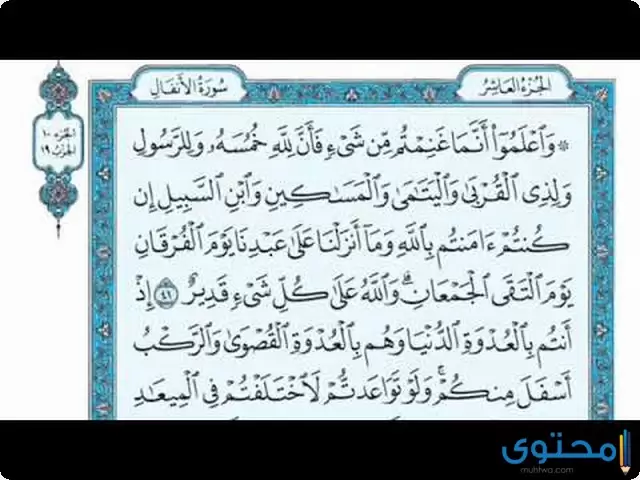 الجُزْءُ العَاشِرُ
سُورَةُ الأَنفَالِ
الجزء ١٠
الحزب ١٩
۞ وَٱعْلَمُوٓا۟ أَنَّمَا غَنِمْتُم مِّن شَىْءٍ فَأَنَّ لِلَّهِ خُمُسَهُۥ وَلِلرَّسُولِ
وَلِذِى ٱلْقُرْبَىٰ وَٱلْيَتَٰمَىٰ وَٱلْمَسَٰكِينِ وَٱبْنِ ٱلسَّبِيلِ إِن
كُنتُمْ ءَامَنتُم بِٱللَّهِ وَمَآ أَنزَلْنَا عَلَىٰ عَبْدِنَا يَوْمَ ٱلْفُرْقَانِ
يَوْمَ ٱلْتَقَى ٱلْجَمْعَانِ ۗ وَٱللَّهُ عَلَىٰ كُلِّ شَىْءٍ قَدِيرٌ ٤١ إِذْ
أَنتُم بِٱلْعُدْوَةِ ٱلدُّنْيَا وَهُم بِٱلْعُدْوَةِ ٱلْقُصْوَىٰ وَٱلرَّكْبُ
أَسْفَلَ مِنكُمْ ۚ وَلَوْ تَوَاعَدتُّمْ لَٱخْتَلَفْتُمْ فِى ٱلْمِيعَٰدِ
محتوى
muhtwa.com